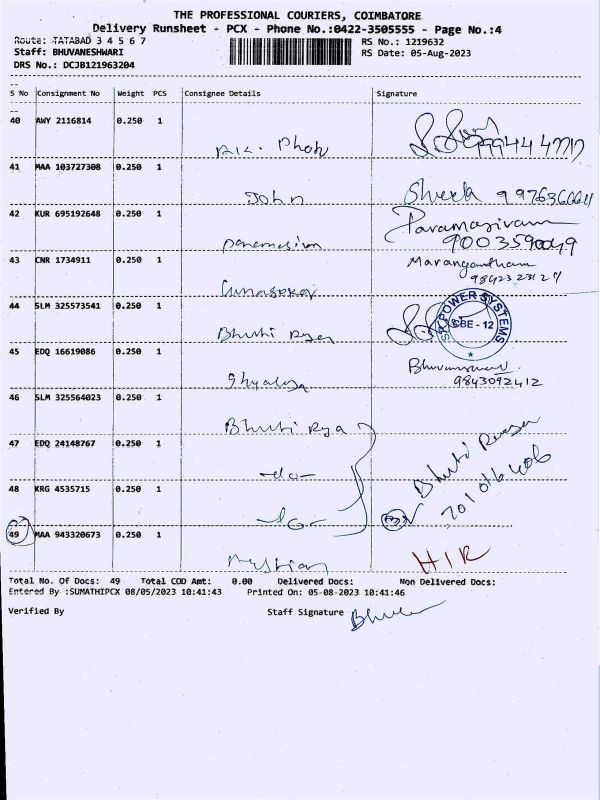 THE PROFESSIONAL COURIERS, COIMBATORE
Delivery Runsheet - PCX - Phone No.:0422-3505555 - Page No.:4
Route: TATABAD 3 4 5 6 7
RS No.: 1219632
Staff: BHUVANESHWARI
RS Date: 05-Aug-2023
DRS No.: DCJB121963204
S No Consignment No Weight PCS Consignee Details Signature
40 AWY 2116814 0.250 1
Photo
41 MAA 103727308 0.250 1
John Sheela
42 KUR 695192648 0.250 1 Paramasivam
9003590049
43 CNR 1734911 0.250 1
Gunasekar
44 SLM 325573541 0.250 1
POWER SYSTEMS
CBE - 12
Bhuti
45 EDQ 16619086 0.250 1
9843092412
46 SLM 325564023 0.250 1
Bhuti
47 EDQ 24148767 0.250 1
-do-
Bhuti
48 KRG 4535715 0.250 1
-do-
49 MAA 943320673 0.250 1
Total No. Of Docs: 49 Total COD Amt: 0.00 Delivered Docs: Non Delivered Docs:
Entered By :SUMATHIPCX 08/05/2023 10:41:43 Printed On: 05-08-2023 10:41:46
Verified By Staff Signature